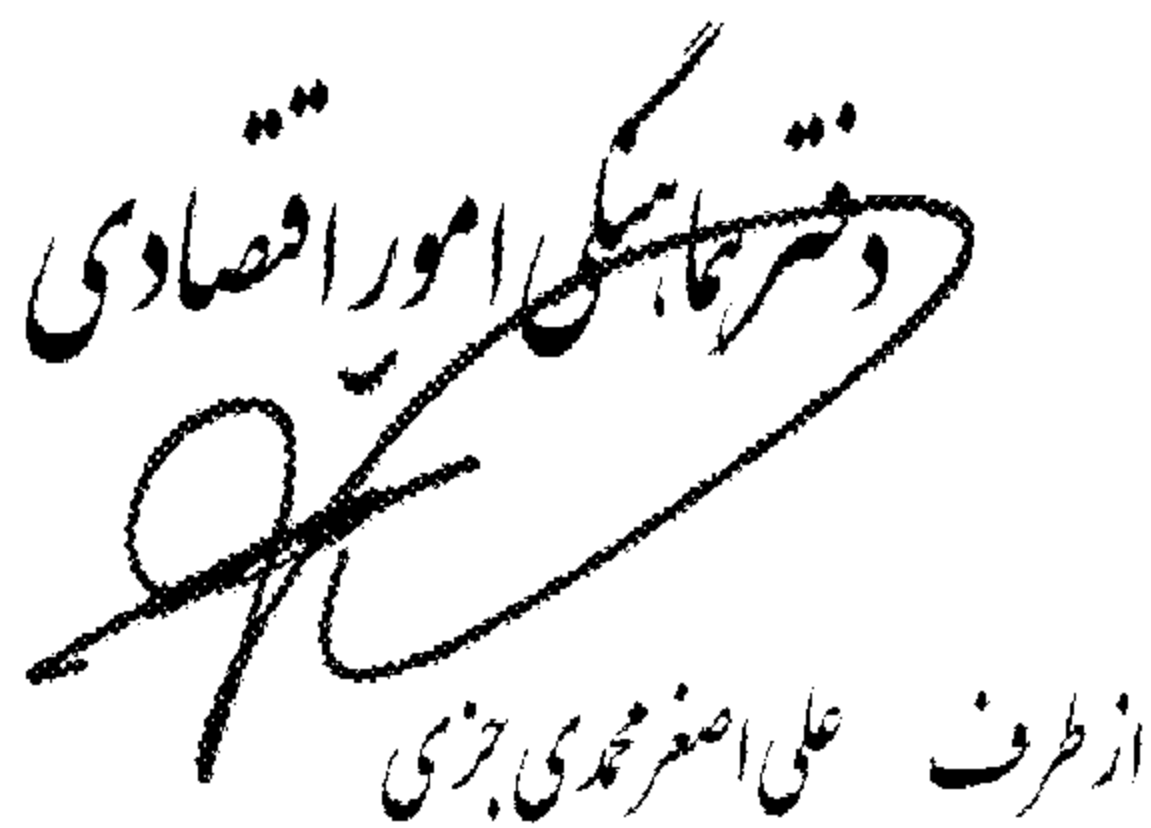 دفتر هماهنگی امور اقتصادی
از طرف علی اصغر محمدی جزی